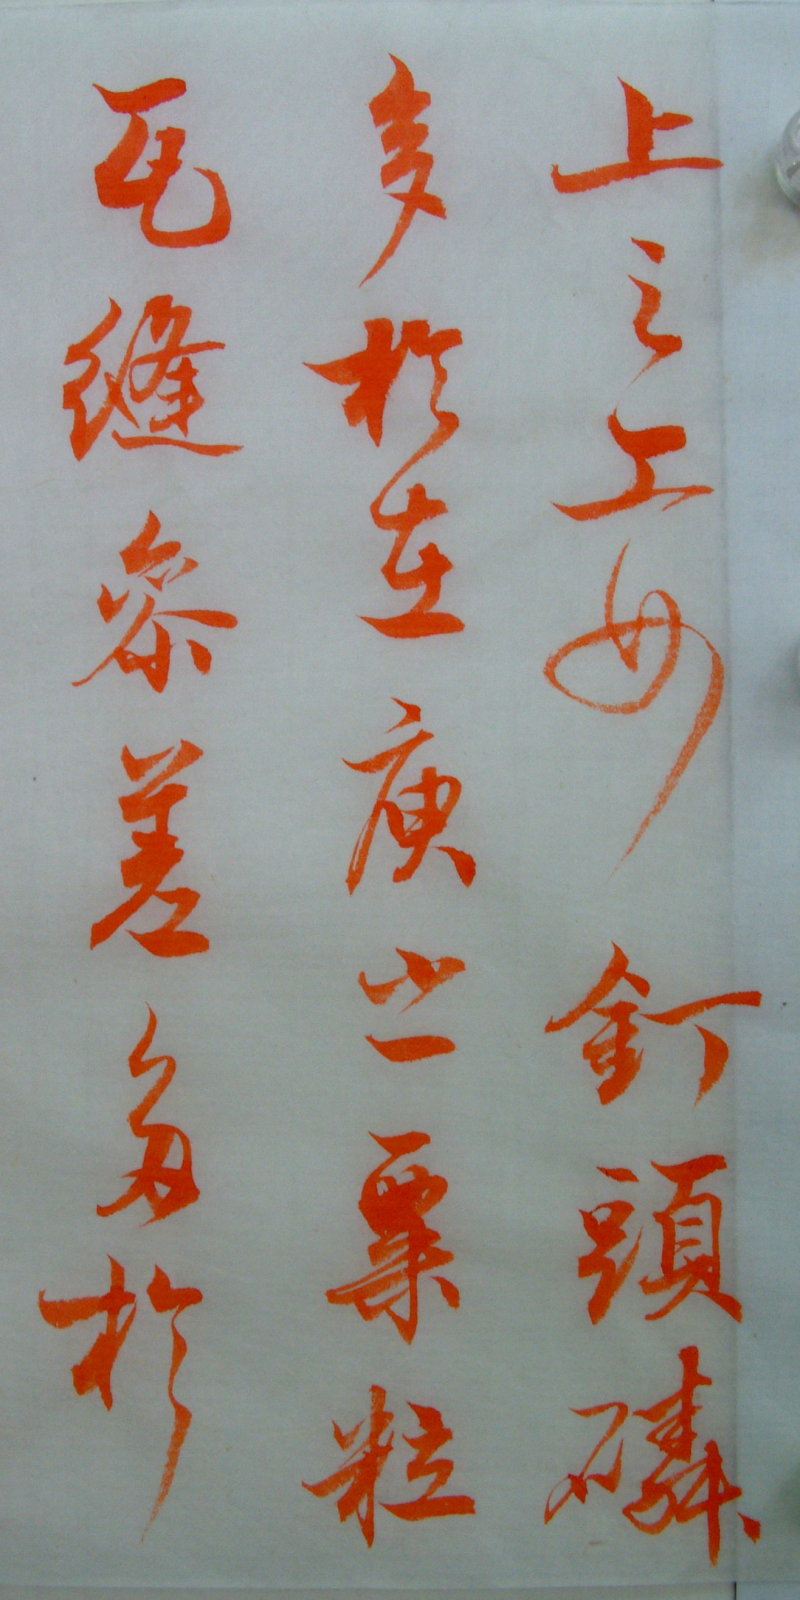 上之工女釘頭磷
多於在庾之粟粒
瓦縫參差多於